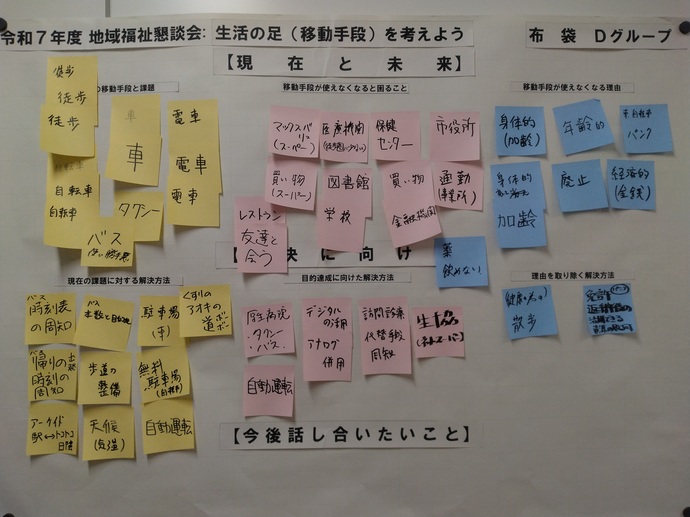 令和7年度 地域福祉懇談会: 生活の足(移動手段)を考えよう
布袋 Dグループ
【現在と未来】
の移動手段と課題
徒歩
徒歩
徒歩
自転車
自転車
車
車
タクシー
バス
電車
電車
電車
移動手段が使えなくなると困ること
マックスバリュ
(スーパー)
医療機関
保健
センター
市役所
買い物
(スーパー)
図書館
学校
買い物
金融機関
通勤
(事業所)
レストラン
友達と
会う
薬
飲めない
移動手段が使えなくなる理由
身体的
(加齢)
年齢的
パンク
身体的
加齢
廃止
経済的
(金銭)
決に向け
現在の課題に対する解決方法
バス
時刻表
の周知
バス
駐車場
(車)
くすりの
アオキの
道ボコボコ
帰りの
時刻の
周知
歩道の
整備
無料
駐車場
(自転車)
アーケイド
駅↔トコトコ
日陰
天候
自動運転
目的達成に向けた解決方法
厚生病院
・タクシー
・バス
自動運転
デジタル
の活用
アナログ
併用
訪問診療
代替手段
周知
生協
(ネットスーパー)
理由を取り除く解決方法
散歩
免許
【今後話し合いたいこと】